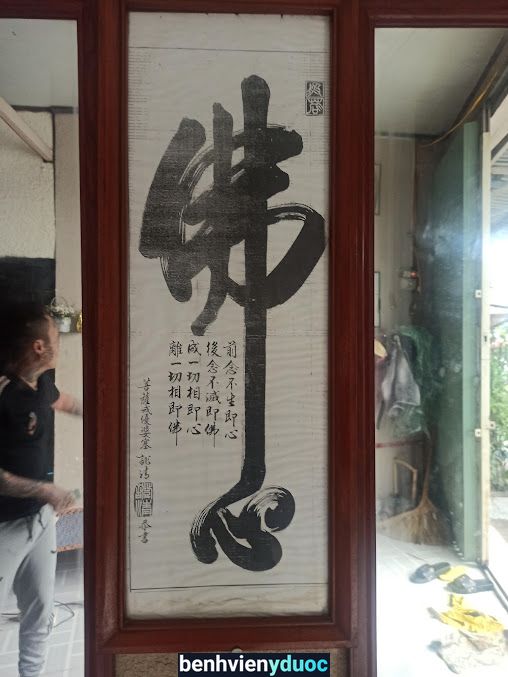 佛心
前念不生即心
後念不滅即佛
成一切相即心
離一切相即佛
菩薩戒優婆塞
恭書
benhvienyduoc